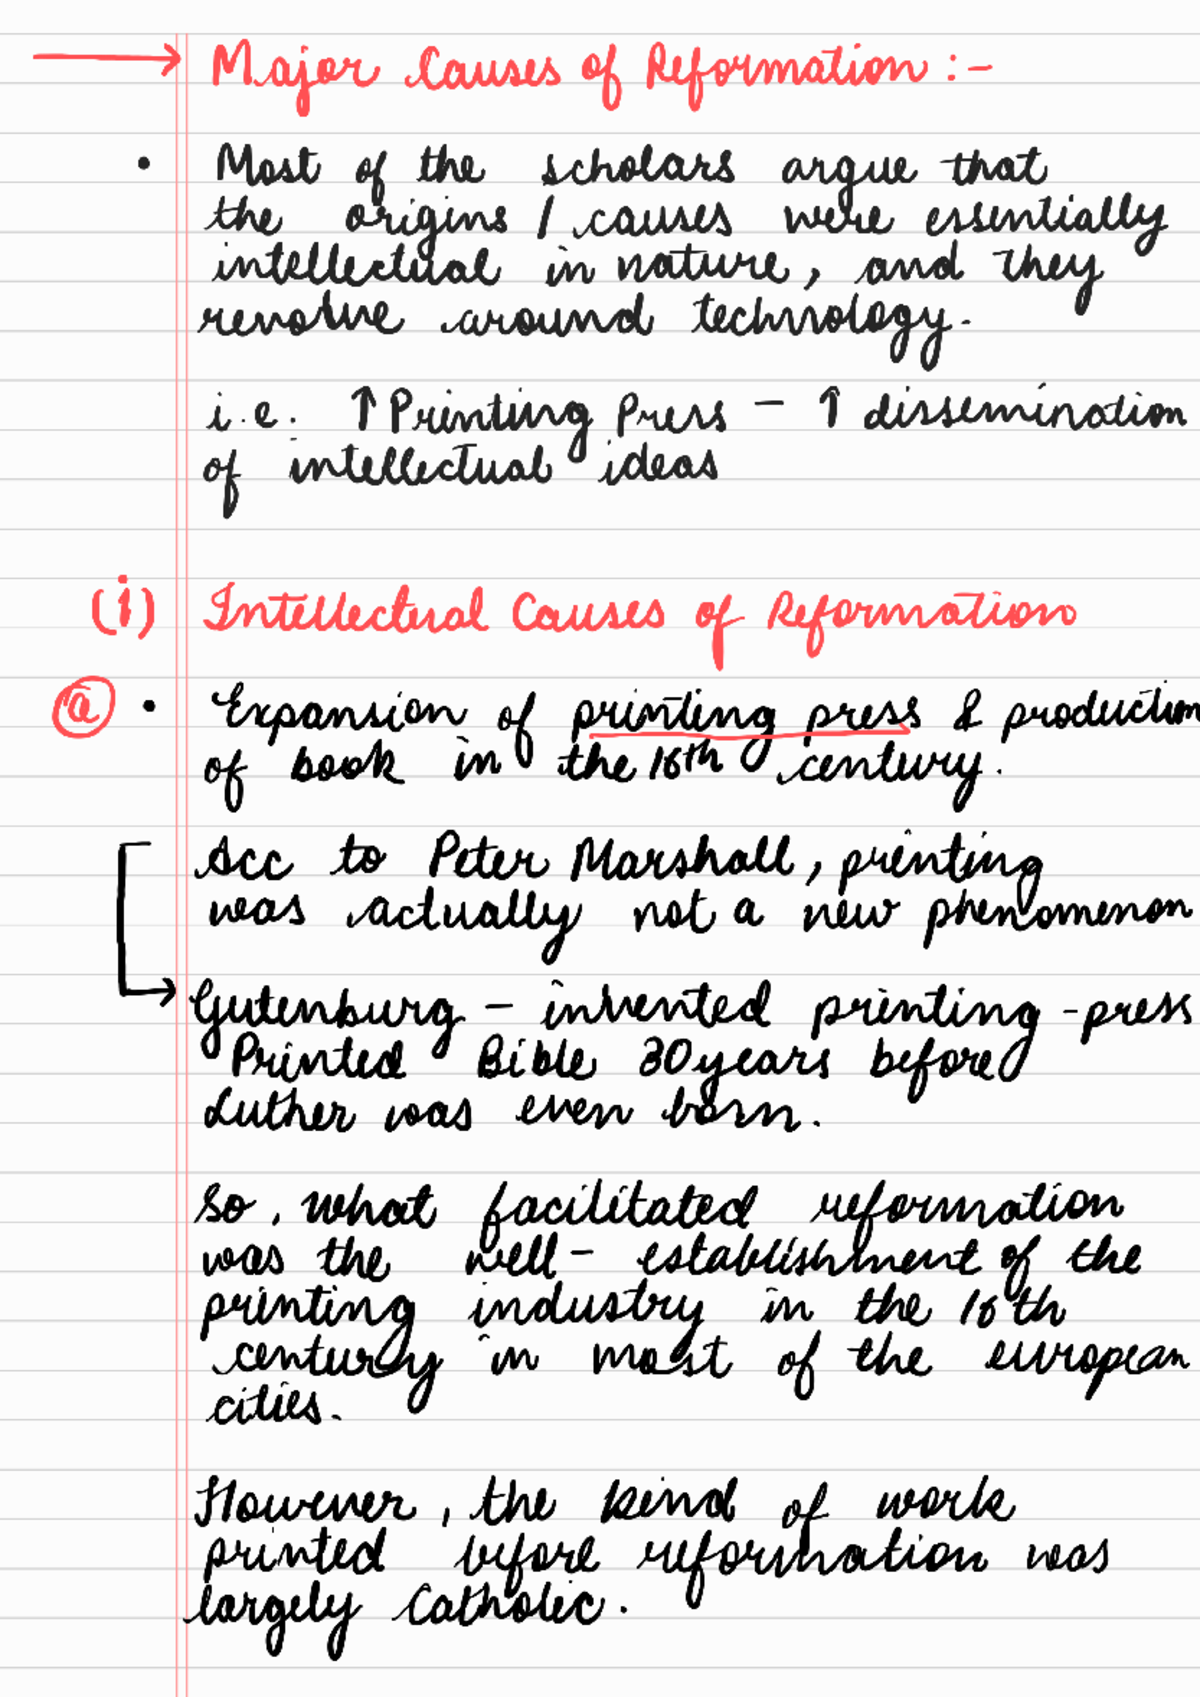 → Major Causes of Reformation :-
• Most of the scholars argue that
the origins / causes were essentially
intellectual in nature, and they
revolve around technology.
i.e. ↑ Printing Press - ↑ dissemination
of intellectual ideas
(i) Intellectual Causes of Reformation
(a) • Expansion of printing press & production
of book in the 16th century.
Acc to Peter Marshall, printing
was actually not a new phenomenon
→ Gutenburg - invented printing-press
Printed Bible 30 years before
Luther was even born.
So, what facilitated reformation
was the well-establishment of the
printing industry in the 16th
century in most of the european
cities.
However, the kind of work
printed before reformation was
largely Catholic.